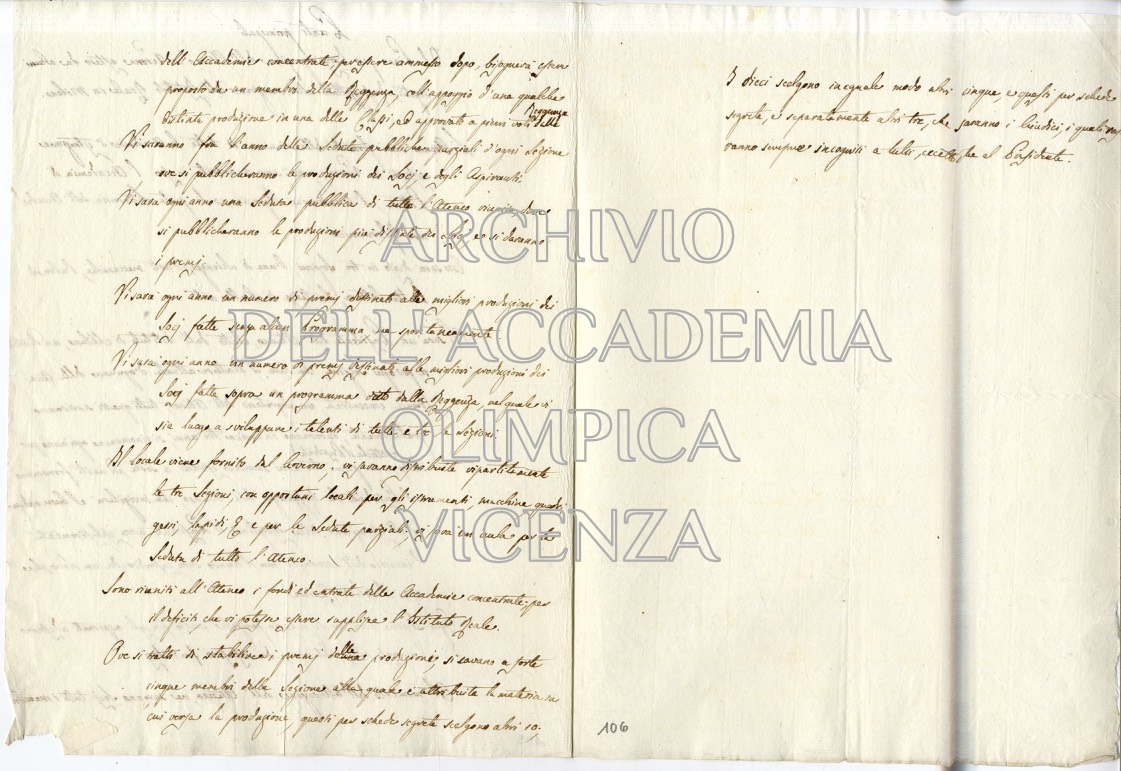 dell'Accademie concentrate; per essere ammesso dopo, bisognerà essere
proposto da un membro della Reggenza, coll'appoggio d'una qualche
distinta produzione in una delle Classi, ed approvato a pieni voti della Reggenza
Vi saranno fra l'anno delle Sedute pubbliche parziali d'ogni Sezione
ove si pubblicheranno le produzioni dei Socj e degli Aspiranti.
Vi sarà ogni anno una Seduta pubblica di tutto l'Ateneo dove
si pubblicheranno le produzioni più distinte dei Socj, e si daranno
i premj.
Vi sarà ogni anno un numero di premj destinati alle migliori produzioni dei
Socj fatte senza alcun Programma, ma spontaneamente.
Vi sarà ogni anno un numero di premj destinati alle migliori produzioni dei
Socj fatte sopra un programma dato dalla Reggenza, nel quale vi
sia luogo a sviluppare i talenti di tutte e tre le Sezioni.
Il locale viene fornito dal Governo; vi saranno distribuite ripartitamente
le tre Sezioni, con opportuni locali per gli istrumenti, macchine, quadri,
gessi, lapidi, &, e per le Sedute parziali; vi sarà un'aula per la
Seduta di tutto l'Ateneo.
Sono riuniti all'Ateneo i fondi ed entrate delle Accademie concentrate; per
il deficit, che vi potesse essere supplisce l'Istituto Reale.
Ove si tratti di stabilire i premj delle produzioni, si cavano a sorte
cinque membri della Sezione alla quale è attribuita la materia su
cui versa la produzione, questi per schede segrete scelgono altri 10.
106
I dieci scelgono in eguale modo altri cinque, e questi per schede
segrete, e separatamente altri tre, che saranno i Giudici, i quali
ranno sempre incogniti a tutti, eccetto che al Presidente.
ARCHIVIO
DELL'ACCADEMIA
OLIMPICA
VICENZA